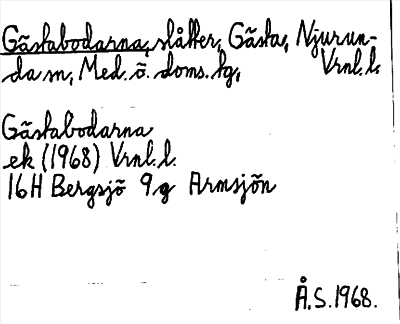 Gästabodarna, slåtter, Gästa, Njurun-
da sn, Med. ö. doms. hg, Vrnl. l.
Gästabodarna
ek (1968) Vrnl. l.
16H Bergsjö 9g Armsjön
Å.S. 1968.